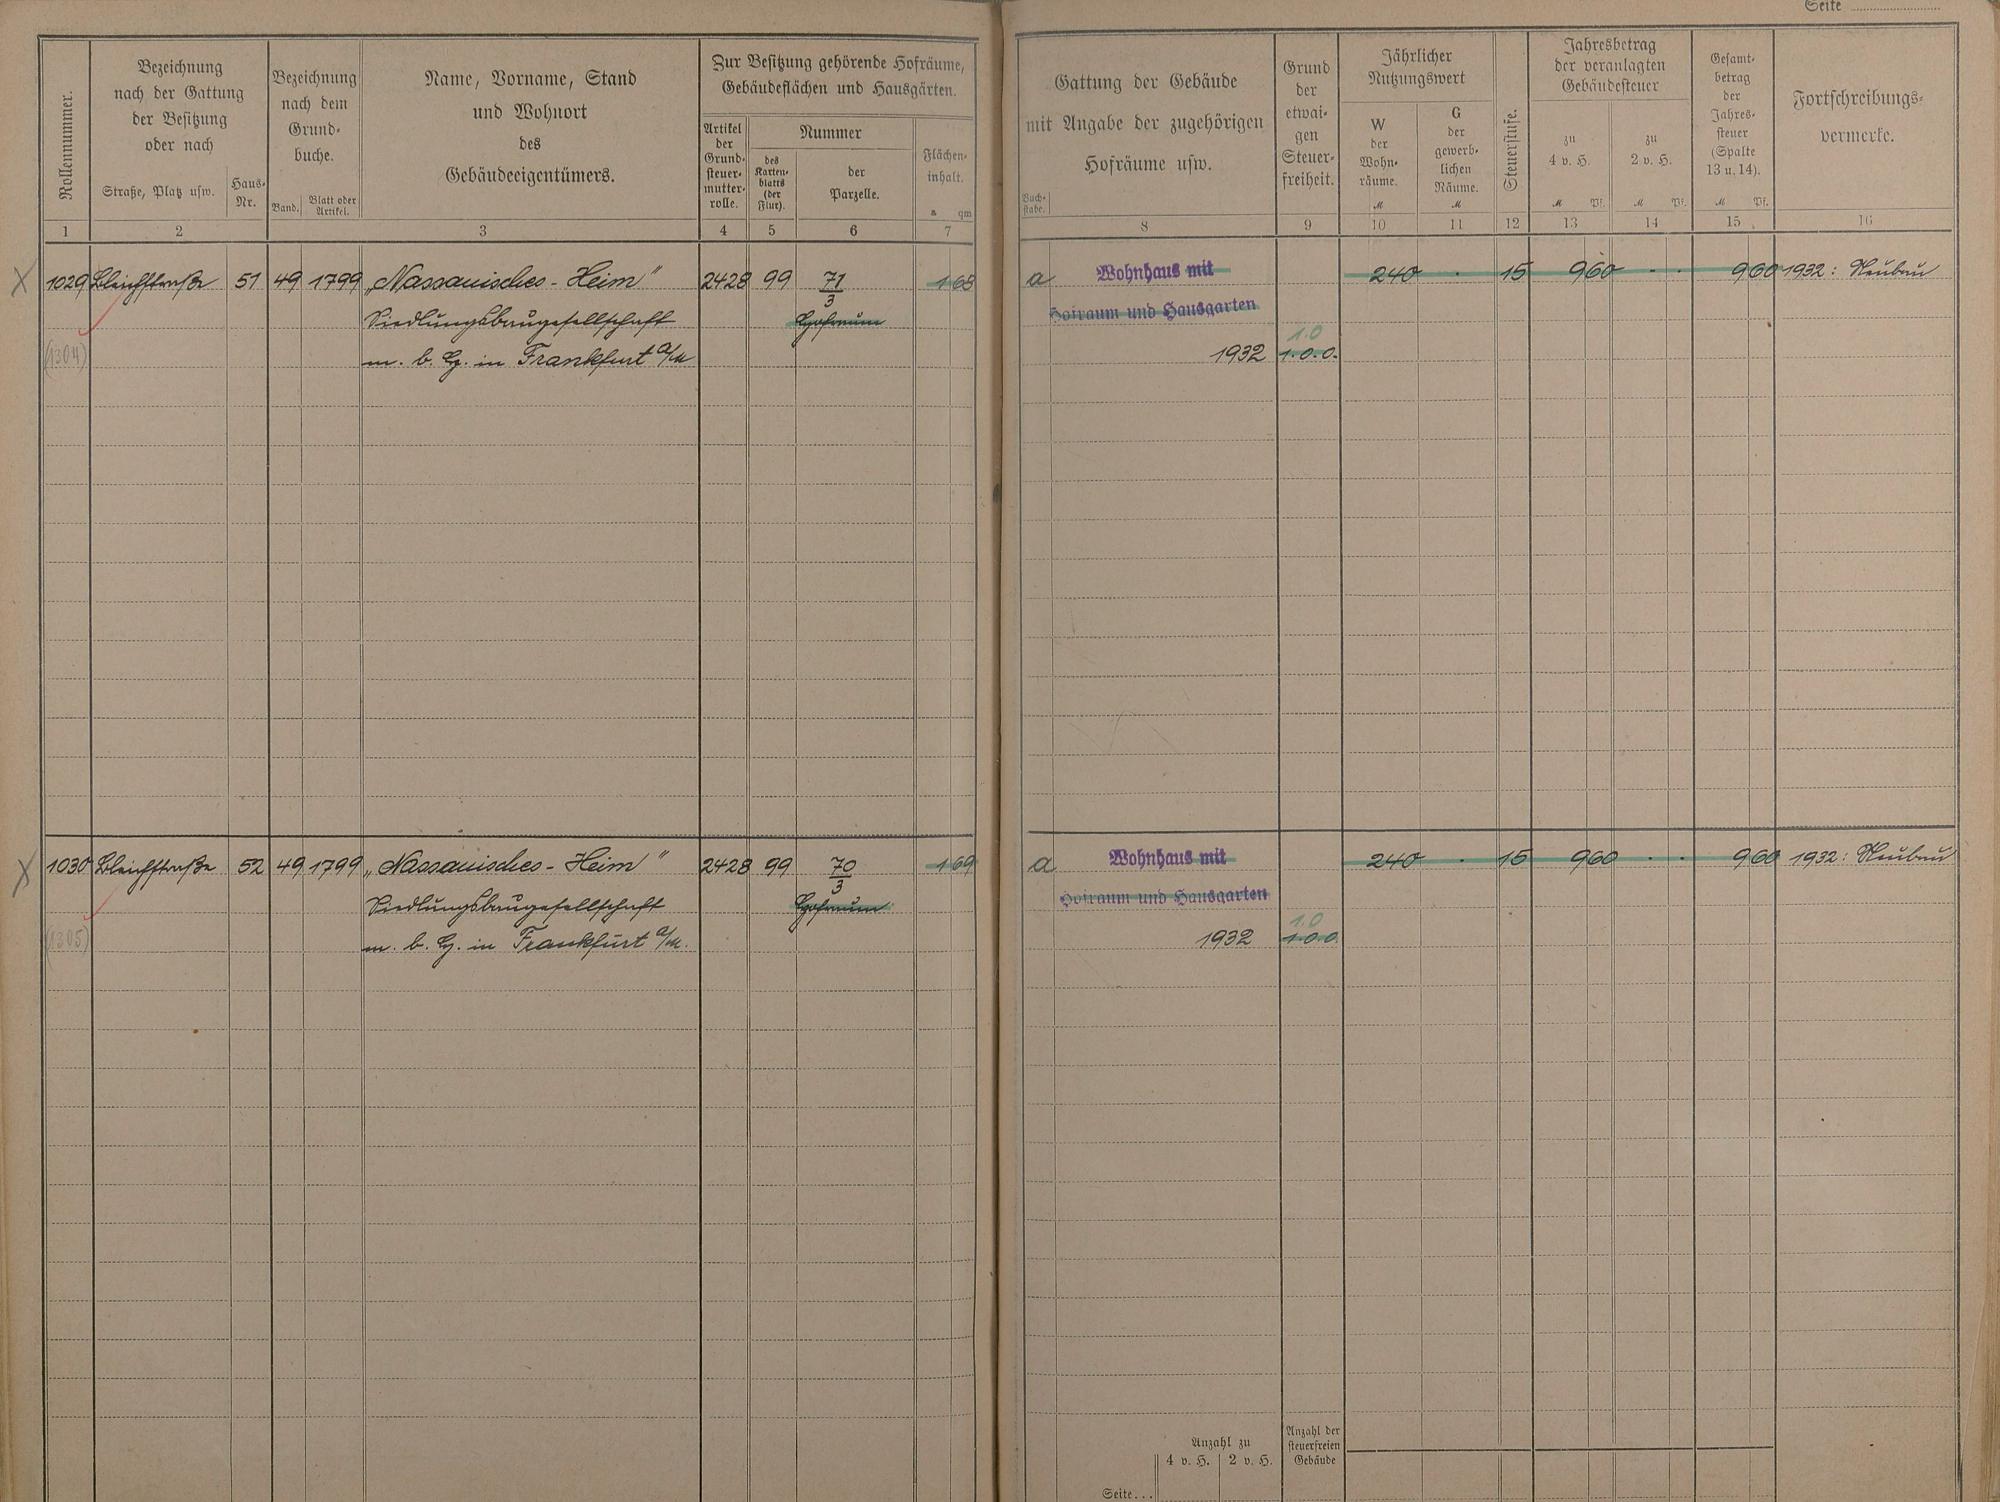 Seite
Rollennummer.
Bezeichnung
nach der Gattung
der Besitzung
oder nach
Straße, Platz usw.
Haus-
Nr.
Bezeichnung
nach dem
Grund-
buche.
Band.
Blatt oder
Artikel.
Name, Vorname, Stand
und Wohnort
des
Gebäudeeigentümers.
Zur Besitzung gehörende Hofräume,
Gebäudeflächen und Hausgärten.
Artikel
der
Grund-
steuer-
mutter-
rolle.
Nummer
des
Karten-
blatts
(der
Flur).
der
Parzelle.
Flächen-
inhalt.
a qm
1 2 3 4 5 6 7
Buch-
stabe.
Gattung der Gebäude
mit Angabe der zugehörigen
Hofräume usw.
Grund
der
etwai-
gen
Steuer-
freiheit.
Jährlicher
Nutzungswert
W
der
Wohn-
räume.
M
G
der
gewerb-
lichen
Räume.
M
Steuerstufe.
Jahresbetrag
der veranlagten
Gebäudesteuer
zu
4 v. H.
M Pf.
zu
2 v. H.
M Pf.
Gesamt-
betrag
der
Jahres-
steuer
(Spalte
13 u. 14).
M Pf.
Fortschreibungs-
vermerke.
8 9 10 11 12 13 14 15 16
1029 Bleichstraße 51 49 1799 „Nassauisches-Heim" 2428 99 71/3 1 68
Siedlungsbaugesellschaft Hofraum
(1304) m. b. H. in Frankfurt a/M
a Wohnhaus mit 240 · 15 9 60 · · 9 60 1932: Neubau
Hofraum und Hausgarten
1.0
1932 1.0.0.
1030 Bleichstraße 52 49 1799 „Nassauisches-Heim" 2428 99 70/3 1 69
Siedlungsbaugesellschaft Hofraum
(1305) m. b. H. in Frankfurt a/M.
a Wohnhaus mit 240 · 15 9 60 · · 9 60 1932: Neubau
Hofraum und Hausgarten
1.0
1932 1.0.0.
Anzahl zu
4 v. H. 2 v. H.
Anzahl der
steuerfreien
Gebäude
Seite...